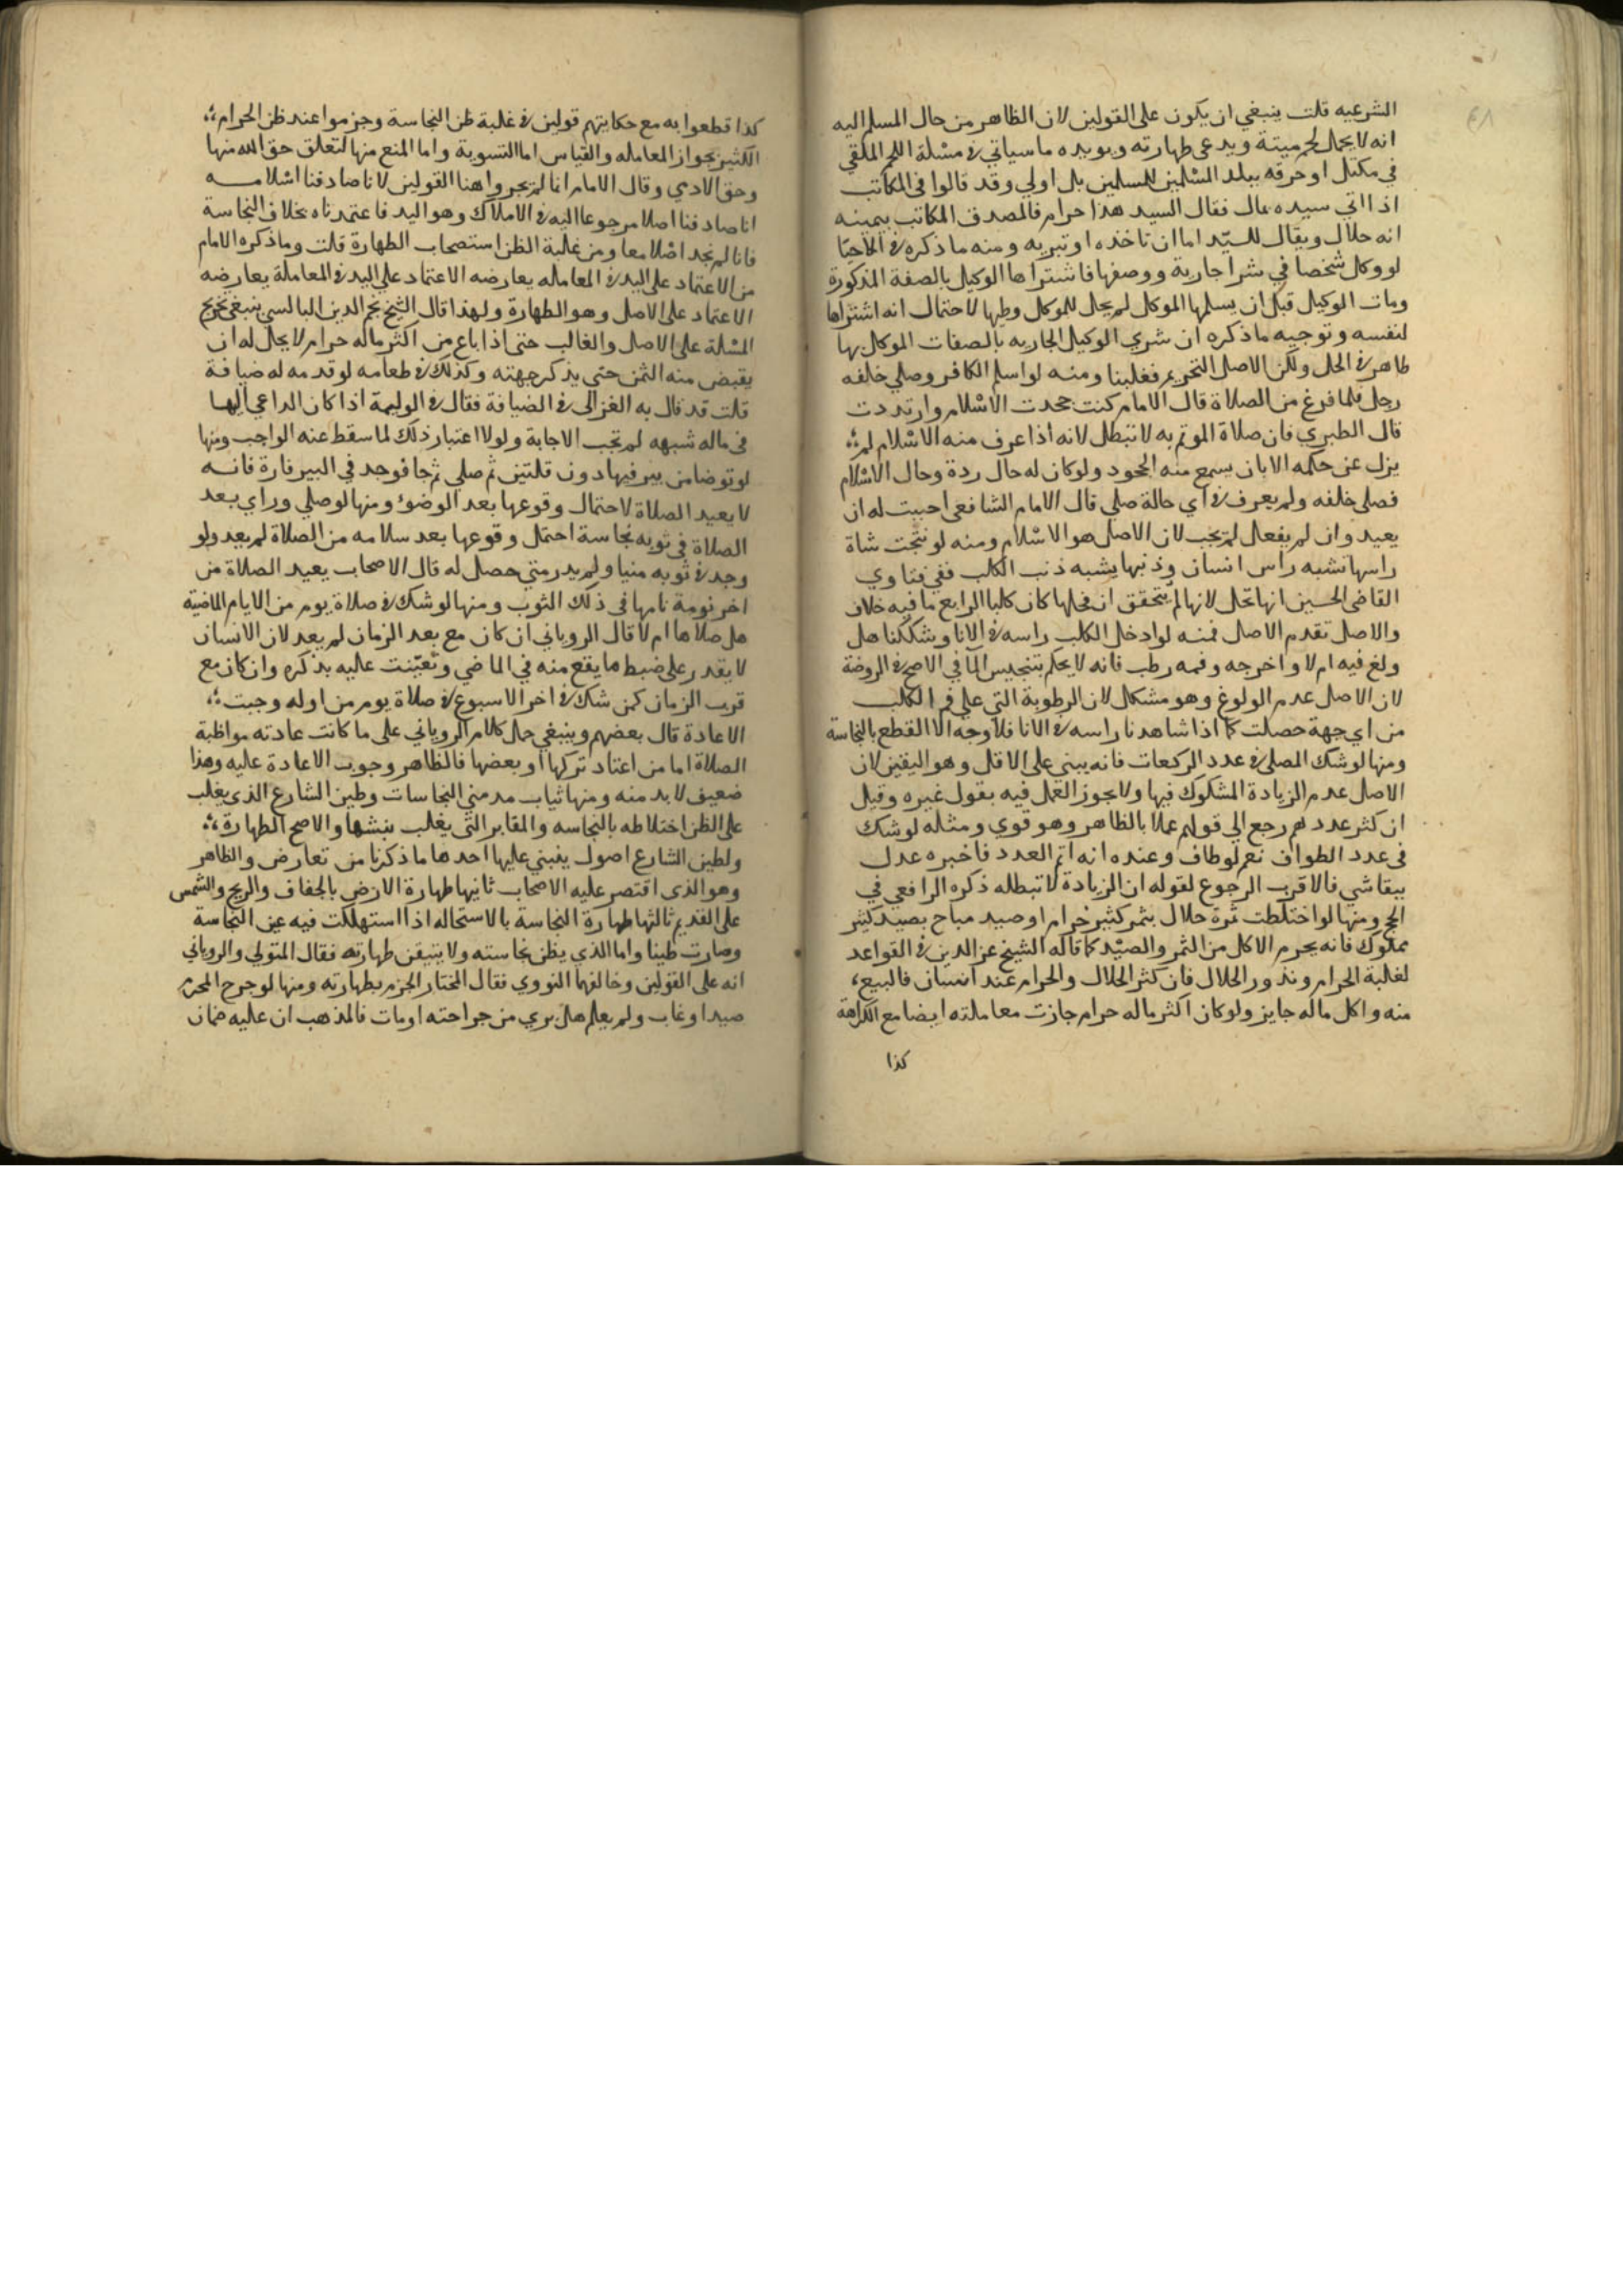 الشرعيه قلت ينبغي ان يكون على القولين لان الظاهر من حال المسلم اليه
انه لا يحمل لحم ميتة ويدعى طهارته ويويده ما سياتي في مسئلة اللحم الملقي
في مكتل او خرقه ببلد المسلمين للمسلمين بل اولي وقد قالوا في المكاتب
اذا اتي سيده بمال فقال السيد هذا حرام فالمصدق المكاتب بيمينه
انه حلال ويقال للسيد اما ان تاخذه او تبريه ومنه ما ذكره في الاحيا
لو وكل شخصا في شرا جارية ووصفها فاشتراها الوكيل بالصفة المذكورة
ومات الوكيل قبل ان يسلمها الموكل لم يحل للموكل وطيها لاحتمال انه اشتراها
لنفسه وتوجيه ما ذكره ان شري الوكيل الجاريه بالصفات الموكل بها
ظاهر في الحل ولكن الاصل التحريم فغلبنا ومنه لو اسلم الكافر وصلي خلفه
رجل فلما فرغ من الصلاة قال الامام كنت جحدت الاسلام وارتددت
قال الطبري فان صلاة الموتم به لا تبطل لانه اذا عرف منه الاسلام لم
يزل عن حكمه الا بان يسمع منه الجحود ولو كان له حال ردة وحال الاسلام
فصلى خلفه ولم يعرف في اي حالة صلي قال الامام الشافعي احببت له ان
يعيد وان لم يفعل لم يجب لان الاصل هو الاسلام ومنه لو نتجت شاة
راسها تشبه راس انسان وذنبها يشبه ذنب الكلب ففي فتاوي
القاضى الحسين انها تحل لانها لم يتحقق ان فحلها كان كلبا الرابع ما فيه خلاف
والاصل تقدم الاصل فمنه لو ادخل الكلب راسه في الانا وشككنا هل
ولغ فيه ام لا واخرجه وفمه رطب فانه لا يحكم بتنجيس الما في الاصح في الروضة
لان الاصل عدم الولوغ وهو مشكل لان الرطوبة التي علي فم الكلب
من اي جهة حصلت كما اذا شاهدنا راسه في الانا فلا وجه الا القطع بالنجاسة
ومنها لو شك المصلي في عدد الركعات فانه يبني على الاقل وهو اليقين لان
الاصل عدم الزيادة المشكوك فيها ولا يجوز العمل فيه بقول غيره وقيل
ان كثر عددهم رجع الي قولهم عملا بالظاهر وهو قوي ومثله لو شك
في عدد الطواف نعم لو طاف وعنده انه اتم العدد فاخبره عدل
ببقا شي فالاقرب الرجوع لقوله ان الزيادة لا تبطله ذكره الرافعي في
الحج ومنها لو اختلطت ثمرة حلال بثمر كثير حرام او صيد مباح بصيد كثير
مملوك فانه يحرم الاكل من الثمر والصيد كما قاله الشيخ عز الدين في القواعد
لغلبة الحرام وندور الحلال فان كثر الحلال والحرام عند انسان فالبيع
منه واكل ماله جايز ولو كان اكثر ماله حرام جازت معاملته ايضا مع الكراهة
كذا
كذا قطعوا به مع حكايتهم قولين في غلبة ظن النجاسة وجزموا عند ظن الحرام
الكثير بجواز المعامله والقياس اما التسوية واما المنع منها لتعلق حق الله منها
وحق الادمي وقال الامام انما لم يجروا هنا القولين لانا صادفنا اصلا مـــه
انا صادفنا اصلا مرجوعا اليه في الاملاك وهو اليد فاعتمدناه بخلاف النجاسة
فانا لم نجد اصلا معا ومن غلبة الظن استصحاب الطهارة قلت وما ذكره الامام
من الاعتماد على اليد في المعامله يعارضه الاعتماد علي اليد في المعاملة يعارضه
الاعتماد على الاصل وهو الطهارة ولهذا قال الشيخ نجم الدين البالسي ينبغي تخريج
المسئلة على الاصل والغالب حتى اذا باع من اكثر ماله حرام لا يحل له ان
يقبض منه الثمن حتي يذكر جهته وكذلك في طعامه لو قدمه له ضيافة
قلت قد قال به الغزالى في الضيافة فقال في الوليمة اذا كان الداعي اليها
في ماله شبهه لم تجب الاجابة ولولا اعتبار ذلك لما سقط عنه الواجب ومنها
لو توضا من بير فيها دون قلتين ثم صلي ثم جا فوجد في البير فارة فانــه
لا يعيد الصلاة لاحتمال وقوعها بعد الوضوء ومنها لو صلي وراي بعد
الصلاة في ثوبه نجاسة احتمل وقوعها بعد سلامه من الصلاة لم يعد ولو
وجد في ثوبه منيا ولم يدر متي حصل له قال الاصحاب يعيد الصلاة من
اخر نومة نامها في ذلك الثوب ومنها لو شك في صلاة يوم من الايام الماضية
هل صلاها ام لا قال الروياني ان كان مع بعد الزمان لم يعد لان الانسان
لا يقدر على ضبط ما يقع منه في الماضي وتعينت عليه بذكره وان كان مع
قرب الزمان كمن شك في اخر الاسبوع في صلاة يوم من اوله وجبت
الاعادة قال بعضهم وينبغي حمل كلام الروياني على ما كانت عادته مواظبة
الصلاة اما من اعتاد تركها او بعضها فالظاهر وجوب الاعادة عليه وهذا
ضعيف لا بد منه ومنها ثياب مدمني النجاسات وطين الشارع الذي يغلب
على الظن اختلاطه بالنجاسه والمقابر التي يغلب نبشها والاصح الطهارة
ولطين الشارع اصول ينبني عليها احدها ما ذكرنا من تعارض والظاهر
وهو الذي اقتصر عليه الاصحاب ثانيها طهارة الارض بالجفاف والريح والشمس
على القديم ثالثها طهارة النجاسة بالاستحاله اذا استهلكت فيه عين النجاسة
وصارت طينا واما الذي يظن نجاسته ولا يتيقن طهارته فقال المتولي والروياني
انه على القولين وخالفهما النووي فقال المختار الجزم بطهارته ومنها لو جرح المحرم
صيدا وغاب ولم يعلم هل بري من جراحته او مات فالمذهب ان عليه ضمان